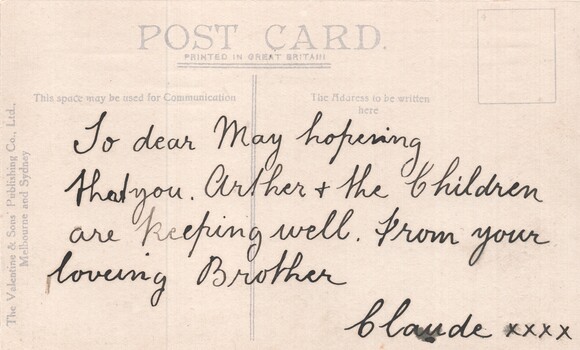 POST CARD.
PRINTED IN GREAT BRITAIN
This space may be used for Communication
The Address to be written
here
The Valentine & Sons Publishing Co., Ltd.,
Melbourne and Sydney
To dear May hopeing
that you. Arther + the Children
are keeping well. From your
loveing Brother
Claude xxxx